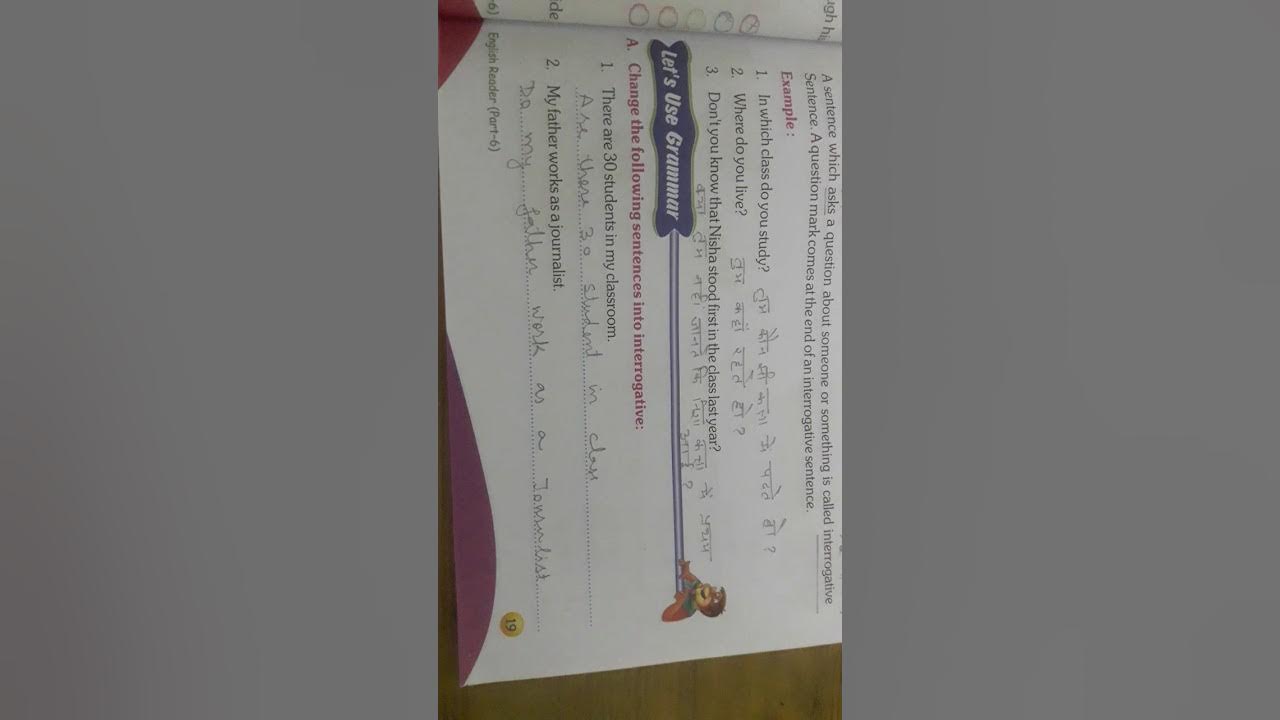 ugh hi
A sentence which asks a question about someone or something is called interrogative
Sentence. A question mark comes at the end of an interrogative sentence.
Example :
1. In which class do you study? तुम कौन सी कक्षा मे पढते हो ?
2. Where do you live? तुम कहाँ रहते हो ?
3. Don't you know that Nisha stood first in the class last year?
क्या तुम नही जानते कि निशा कक्षा में प्रथम
आई ?
Let's Use Grammar
A. Change the following sentences into interrogative:
1. There are 30 students in my classroom.
Are there 30 student in class
2. My father works as a journalist.
Do my father work as a
ide
-6) English Reader (Part-6)
19